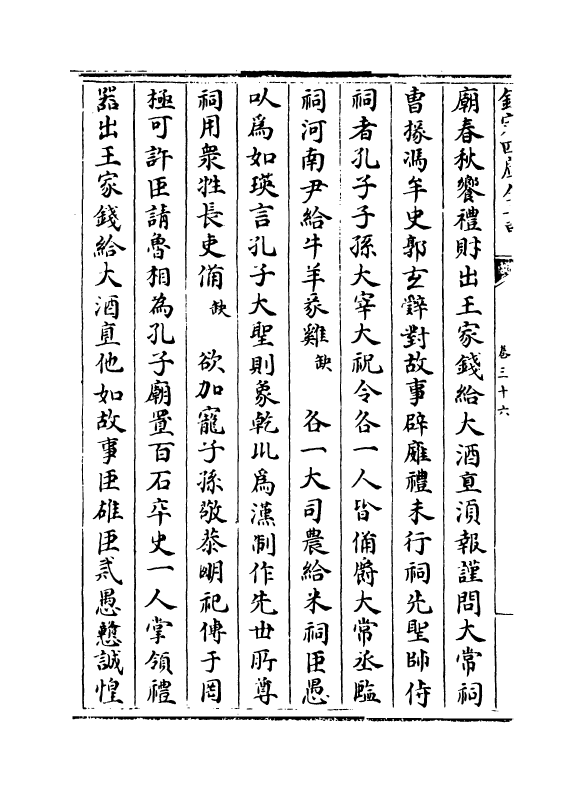 卷三十六
廟春秋饗禮財出王家錢給大酒直須報謹問大常祠
曹掾馮牟史郭玄辭對故事辟廱禮未行祠先聖師侍
祠者孔子子孫大宰大祝令各一人皆備爵大常丞監
祠河南尹給牛羊豕雞缺　各一大司農給米祠臣愚
以爲如瑛言孔子大聖則象乾㘳爲漢制作先世所尊
祠用衆牲長吏備缺　欲加寵子孫敬恭明祀傳于罔
極可許臣請魯相為孔子廟置百石卒史一人掌領禮
器出王家錢給大酒直他如故事臣雄臣戒愚戇誠惶